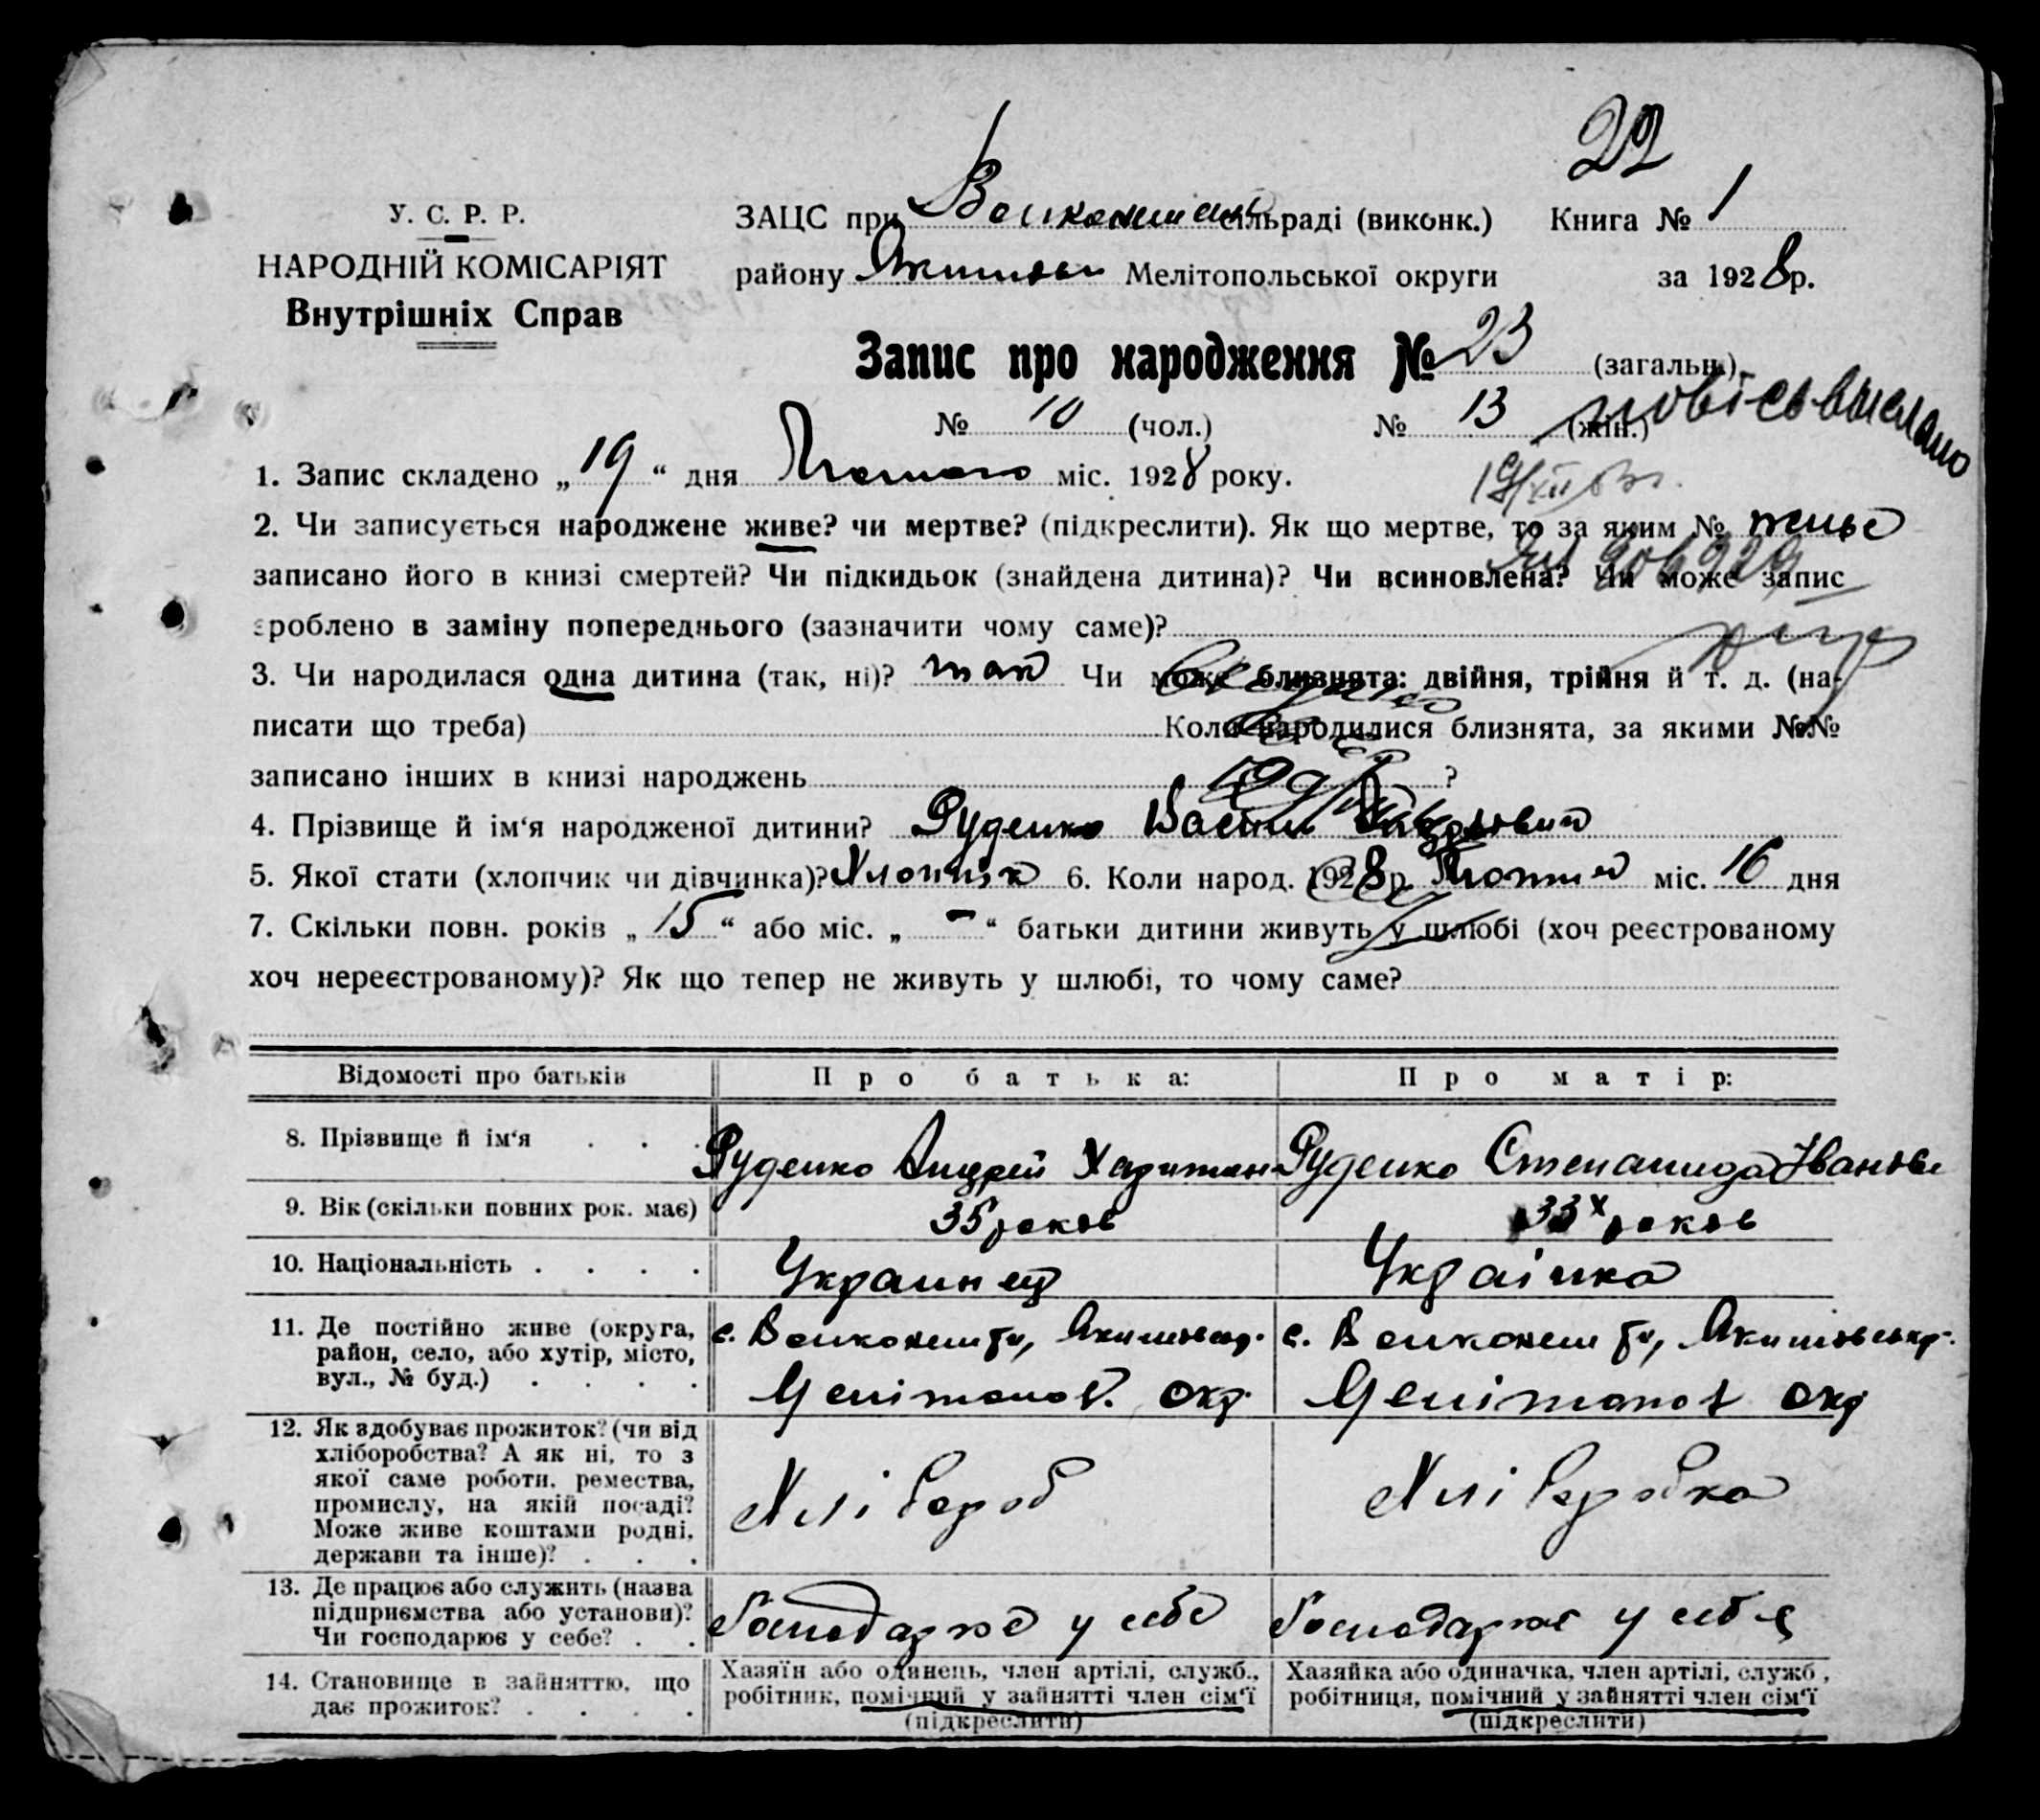 22
У. С. Р. Р.
НАРОДНІЙ КОМІСАРІЯТ
Внутрішніх Справ
ЗАЦС при сільраді (виконк.) Книга № 1
району Мелітопольської округи за 1928р.
Запис про народження № 23 (загальн.)
№ 10 (чол.) № 13 (жін.)
1. Запис складено „19“ дня Лютого міс. 1928 року.
2. Чи записується народжене живе? чи мертве? (підкреслити). Як що мертве, то за яким №
записано його в книзі смертей? Чи підкидьок (знайдена дитина)? Чи всиновлена? Чи може запис
зроблено в заміну попереднього (зазначити чому саме)?
3. Чи народилася одна дитина (так, ні)? так Чи може близнята: двійня, трійня й т. д. (на-
писати що треба) Коли народилися близнята, за якими №№
записано інших в книзі народжень ?
4. Прізвище й ім‘я народженої дитини? Руденко
5. Якої стати (хлопчик чи дівчинка)? Хлопчик 6. Коли народ. 1928р. Лютий міс. 16 дня
7. Скільки повн. років „15“ або міс. „-“ батьки дитини живуть у шлюбі (хоч реєстрованому
хоч нереєстрованому)? Як що тепер не живуть у шлюбі, то чому саме?
Відомості про батьків Про батька: Про матір:
8. Прізвище й ім‘я . . . Руденко Андрей Харитон Руденко Степанида Іванові
9. Вік (скільки повних рок. має) 35 років 33х років
10. Національність . . . . Украинец Українка
11. Де постійно живе (округа,
район, село, або хутір, місто,
вул., № буд.) . . . .
Мелітопол. окр. Мелітопол окр
12. Як здобуває прожиток? (чи від
хліборобства? А як ні, то з
якої саме роботи, ремества,
промислу, на якій посаді?
Може живе коштами родні,
держави та інше)? . . .
Хлібороб Хліборобка
13. Де працює або служить (назва
підприємства або установи)?
Чи господарює у себе? . .
Господарює у себе Господарює у себе
14. Становище в зайняттю, що
дає прожиток? . . . .
Хазяїн або одинець, член артілі, служб.,
робітник, помічний у зайнятті член сім‘ї
(підкреслити)
Хазяйка або одиначка, член артілі, служб.,
робітниця, помічний у зайнятті член сім‘ї
(підкреслити)